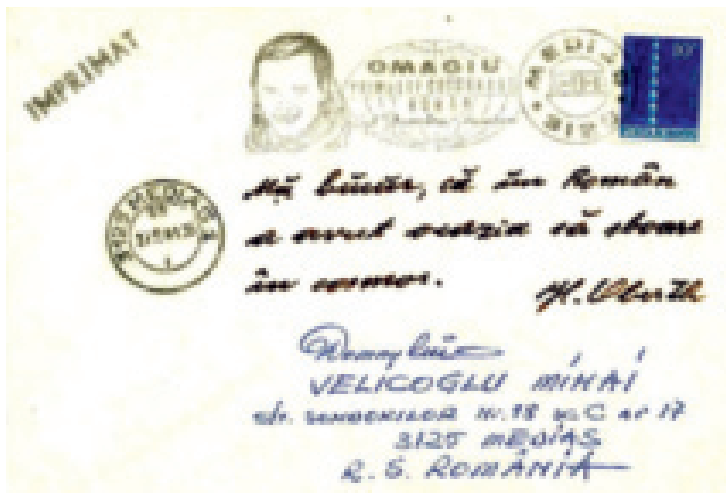 IMPRIMAT
OMAGIU
ROMÂN
MEDIAȘ
Mă bucur, că un Român
a avut ocazia să zboare
în cosmos.
Domnului
VELICOGLU MIHAI
str. Nr. 18 C ap 17
3125 MEDIAȘ
R. S. ROMÂNIA